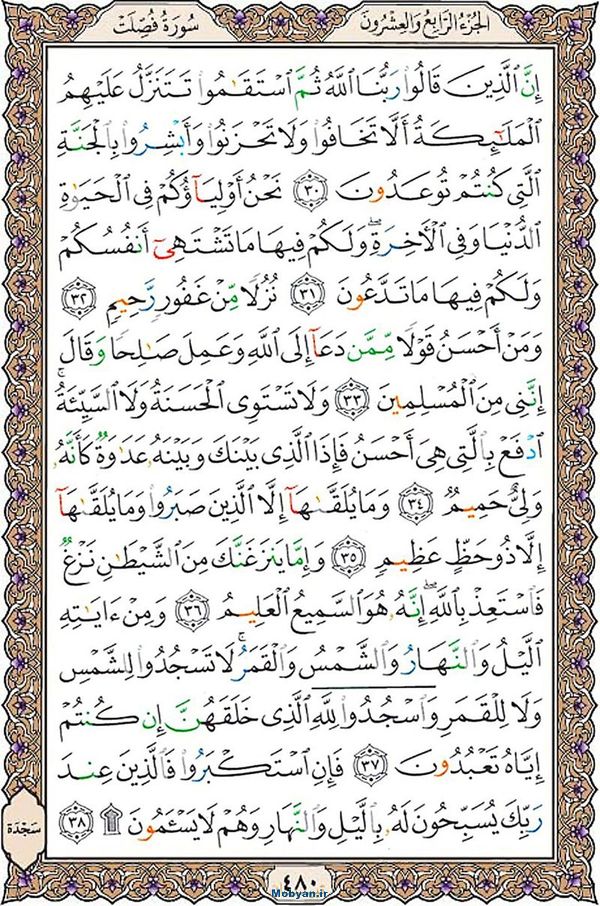 الجُزْءُ الرَّابِعُ وَالعِشْرُونَ
سُورَةُ فُصِّلَتْ
إِنَّ ٱلَّذِينَ قَالُوا۟ رَبُّنَا ٱللَّهُ ثُمَّ ٱسْتَقَـٰمُوا۟ تَتَنَزَّلُ عَلَيْهِمُ
ٱلْمَلَـٰٓئِكَةُ أَلَّا تَخَافُوا۟ وَلَا تَحْزَنُوا۟ وَأَبْشِرُوا۟ بِٱلْجَنَّةِ
ٱلَّتِى كُنتُمْ تُوعَدُونَ ٣٠ نَحْنُ أَوْلِيَآؤُكُمْ فِى ٱلْحَيَوٰةِ
ٱلدُّنْيَا وَفِى ٱلْـَٔاخِرَةِ ۖ وَلَكُمْ فِيهَا مَا تَشْتَهِىٓ أَنفُسُكُمْ
وَلَكُمْ فِيهَا مَا تَدَّعُونَ ٣١ نُزُلًا مِّنْ غَفُورٍ رَّحِيمٍ ٣٢
وَمَنْ أَحْسَنُ قَوْلًا مِّمَّن دَعَآ إِلَى ٱللَّهِ وَعَمِلَ صَـٰلِحًا وَقَالَ
إِنَّنِى مِنَ ٱلْمُسْلِمِينَ ٣٣ وَلَا تَسْتَوِى ٱلْحَسَنَةُ وَلَا ٱلسَّيِّئَةُ ۚ
ٱدْفَعْ بِٱلَّتِى هِىَ أَحْسَنُ فَإِذَا ٱلَّذِى بَيْنَكَ وَبَيْنَهُۥ عَدَٰوَةٌ كَأَنَّهُۥ
وَلِىٌّ حَمِيمٌ ٣٤ وَمَا يُلَقَّىٰهَآ إِلَّا ٱلَّذِينَ صَبَرُوا۟ وَمَا يُلَقَّىٰهَآ
إِلَّا ذُو حَظٍّ عَظِيمٍ ٣٥ وَإِمَّا يَنزَغَنَّكَ مِنَ ٱلشَّيْطَـٰنِ نَزْغٌ
فَٱسْتَعِذْ بِٱللَّهِ ۖ إِنَّهُۥ هُوَ ٱلسَّمِيعُ ٱلْعَلِيمُ ٣٦ وَمِنْ ءَايَـٰتِهِ
ٱلَّيْلُ وَٱلنَّهَارُ وَٱلشَّمْسُ وَٱلْقَمَرُ ۚ لَا تَسْجُدُوا۟ لِلشَّمْسِ
وَلَا لِلْقَمَرِ وَٱسْجُدُوا۟ لِلَّهِ ٱلَّذِى خَلَقَهُنَّ إِن كُنتُمْ
إِيَّاهُ تَعْبُدُونَ ٣٧ فَإِنِ ٱسْتَكْبَرُوا۟ فَٱلَّذِينَ عِندَ
رَبِّكَ يُسَبِّحُونَ لَهُۥ بِٱلَّيْلِ وَٱلنَّهَارِ وَهُمْ لَا يَسْـَٔمُونَ ۩ ٣٨
سَجْدَة
٤٨٠
Mobyan.ir